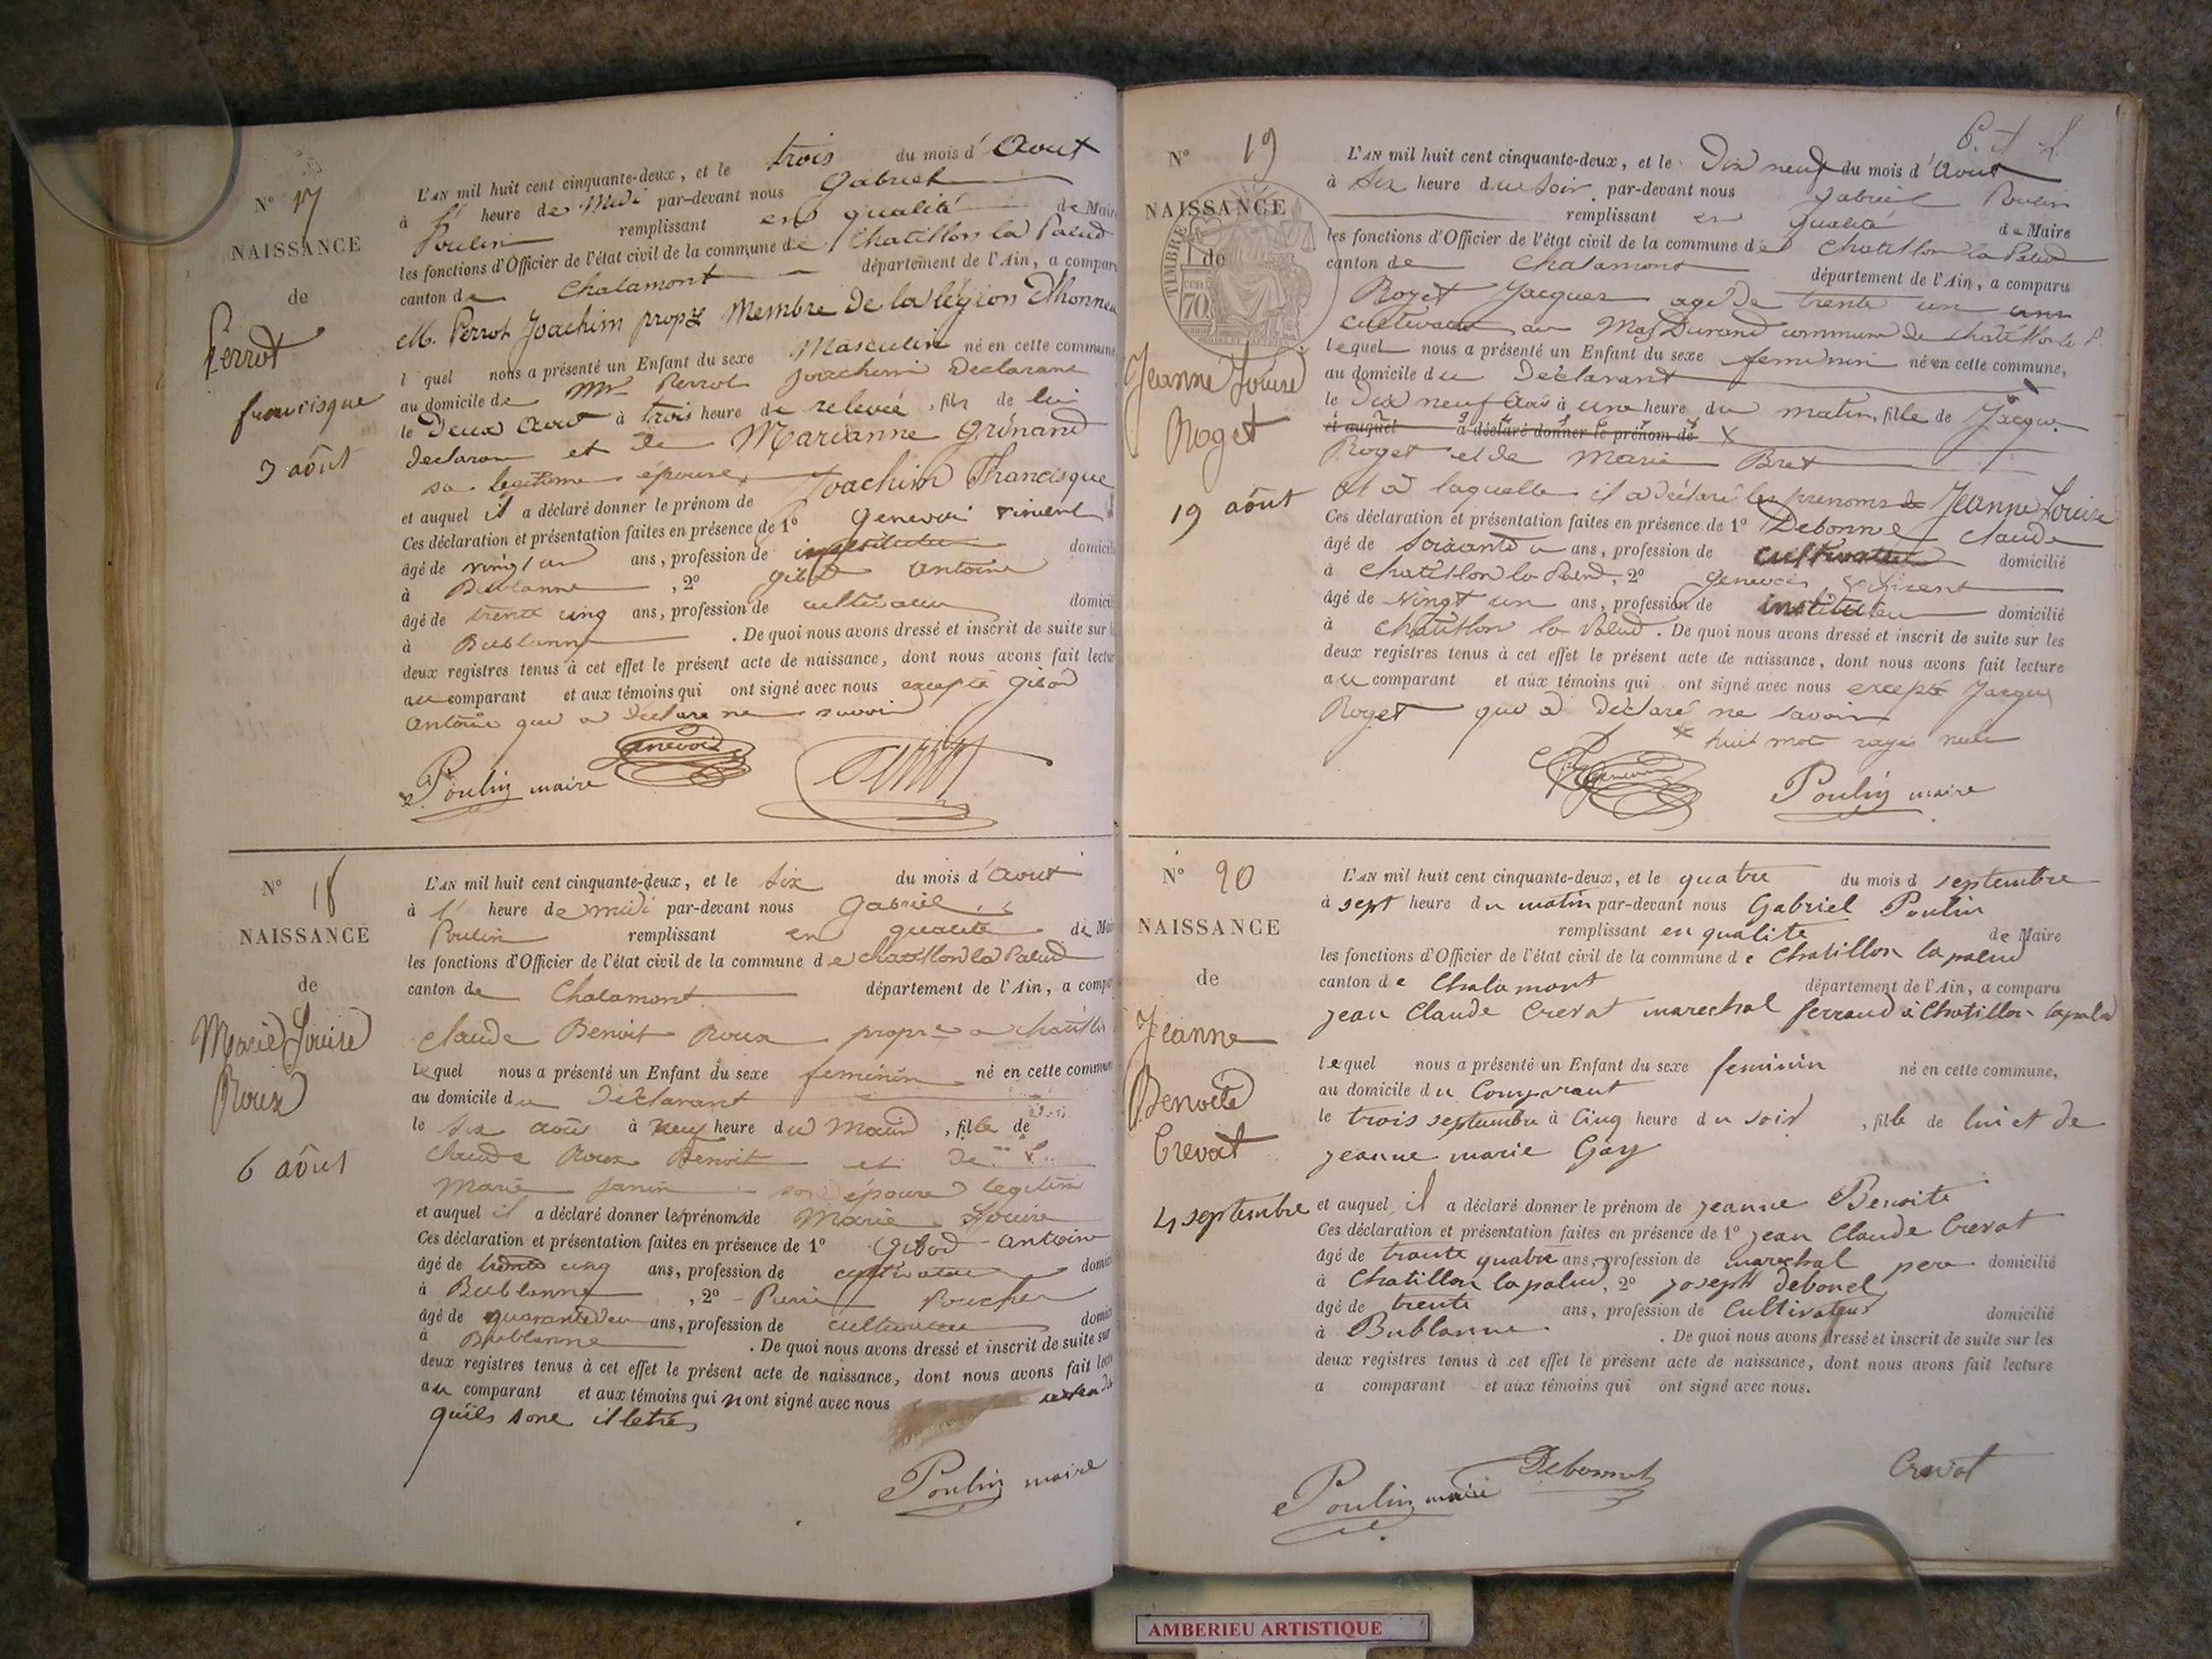 N° 17
NAISSANCE
de
Perrot
francisque
3 aôut
L'AN mil huit cent cinquante-deux, et le trois du mois d'Aout
à 1' heure de Midi par-devant nous Gabriel
Poulin remplissant en qualité de Maire
les fonctions d'Officier de l'état civil de la commune de Chatillon la Palud
canton de Chalamont département de l'Ain, a compar
M. Perrot Joachim propre Membre De la légion D'honneu
l quel nous a présenté un Enfant du sexe Masculin né en cette commune
au domicile de Mr Perrot Joachim Declarant
le Deux Aout à trois heure de relevée, fils de lui
declarant et de Marianne Grénand
sa legitime epouse
et auquel il a déclaré donner le prénom de Joachim Francisque
Ces déclaration et présentation faites en présence de 1° Genevoi vincent
âgé de vingt un ans, profession de instituteu domicil
à Bublanne, 2° Gibod Antoine
âgé de trente cinq ans, profession de cultivateu domicil
à Bublanne. De quoi nous avons dressé et inscrit de suite sur l
deux registres tenus à cet effet le présent acte de naissance, dont nous avons fait lectur
au comparant et aux témoins qui ont signé avec nous excepté Gibod
Antoine qui a déclaré ne savoir
Poulin maire Genevois
N° 18
NAISSANCE
de
Marie Louise
Roux
6 aôut
L'AN mil huit cent cinquante-deux, et le Six du mois d'Aout
à 1' heure de midi par-devant nous Gabriel
Poulin remplissant en qualité de Mai
les fonctions d'Officier de l'état civil de la commune de Chatillon la Palud
canton de Chalamont département de l'Ain, a compa
Claude Benoit Roux propre a chatillo
lequel nous a présenté un Enfant du sexe feminin né en cette commun
au domicile du Déclarant
le Six août à neuf heure du Matin, fille de
Claude Roux Benoit et de
Marie Janin son épouse legitim
et auquel il a déclaré donner les prénoms de Marie Louise
Ces déclaration et présentation faites en présence de 1° Gibod Antoine
âgé de trente cinq ans, profession de cultivateu domici
à Bublanne, 2° Pierre Poucher
âgé de quarante deu ans, profession de cultivateu domic
à Bublanne. De quoi nous avons dressé et inscrit de suite sur
deux registres tenus à cet effet le présent acte de naissance, dont nous avons fait lectu
au comparant et aux témoins qui n'ont signé avec nous
qu'ils sont illetrés
Poulin maire
N° 19
NAISSANCE
de
TIMBRE
70
Jeanne Louise
Roget
19 aôut
L'AN mil huit cent cinquante-deux, et le Dix neuf du mois d'Aout
à Six heure du Soir par-devant nous Gabriel Poulin
remplissant en qualité de Maire
les fonctions d'Officier de l'état civil de la commune de Chatillon la Palud
canton de Chalamont département de l'Ain, a comparu
Roget Jacques agé de trente un ans
cultivateur au Mas Durand commune de chatillon la P
lequel nous a présenté un Enfant du sexe feminin né en cette commune,
au domicile du Déclarant
le Dix neuf Août à une heure du matin, fille de Jacque
et auquel a déclaré donner le prénom de X
Roget et de Marie Bret
et a laquelle il a déclaré les prenoms de Jeanne Louise
Ces déclaration et présentation faites en présence de 1° Debonne Claude
âgé de Soixante ans, profession de cultivateur domicilié
à Chatillon la Palud, 2° Genevois Vincent
âgé de Vingt un ans, profession de instituteu domicilié
à Chatillon la Palud. De quoi nous avons dressé et inscrit de suite sur les
deux registres tenus à cet effet le présent acte de naissance, dont nous avons fait lecture
au comparant et aux témoins qui ont signé avec nous excepté Jacques
Roget qui a déclaré ne savoir
X huit mots rayés nuls
Genevois Poulin maire
N° 20
NAISSANCE
de
Jeanne
Benoite
Crevat
4 septembre
L'AN mil huit cent cinquante-deux, et le quatre du mois d septembre
à sept heure du matin par-devant nous Gabriel Poulin
remplissant en qualite de Maire
les fonctions d'Officier de l'état civil de la commune de Chatillon la palud
canton de Chalamont département de l'Ain, a comparu
jean Claude Crevat marechal ferrand à Chatillon lapalud
lequel nous a présenté un Enfant du sexe feminin né en cette commune,
au domicile du Comparant
le trois septembre à Cinq heure du soir, fille de lui et de
jeanne marie Gay
et auquel il a déclaré donner le prénom de jeanne Benoite
Ces déclaration et présentation faites en présence de 1° jean Claude Crevat
âgé de trante quatre ans, profession de marechal pere domicilié
à Chatillon lapalud, 2° joseph debonel
âgé de trente ans, profession de Cultivateur domicilié
à Bublanne. De quoi nous avons dressé et inscrit de suite sur les
deux registres tenus à cet effet le présent acte de naissance, dont nous avons fait lecture
a comparant et aux témoins qui ont signé avec nous.
Poulin maire Debonnel Crevat
AMBERIEU ARTISTIQUE